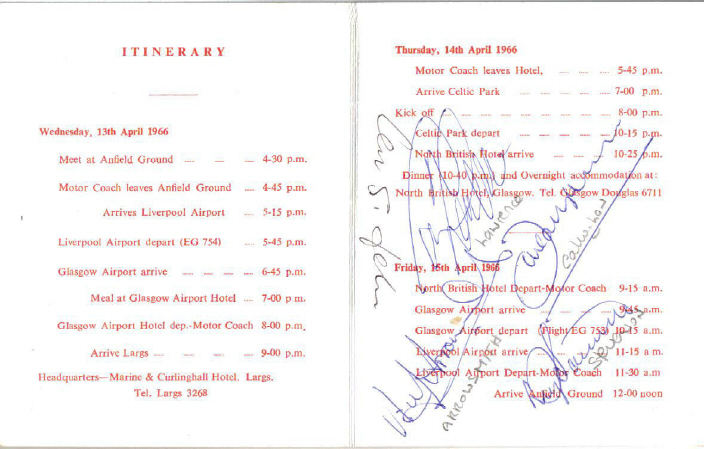 ITINERARY
Wednesday, 13th April 1966
Meet at Anfield Ground ... ... 4-30 p.m.
Motor Coach leaves Anfield Ground ... 4-45 p.m.
Arrives Liverpool Airport ... 5-15 p.m.
Liverpool Airport depart (EG 754) ... 5-45 p.m.
Glasgow Airport arrive ... ... ... ... 6-45 p.m.
Meal at Glasgow Airport Hotel ... 7-00 p m.
Glasgow Airport Hotel dep.-Motor Coach 8-00 p.m.
Arrive Largs ... ... ... ... 9-00 p.m.
Headquarters—Marine & Curlinghall Hotel. Largs.
Tel. Largs 3268
Thursday, 14th April 1966
Motor Coach leaves Hotel, ... ... ... 5-45 p.m.
Arrive Celtic Park ... ... ... 7-00 p.m.
Kick off ... ... ... ... ... 8-00 p.m.
Celtic Park depart ... ... ... ... 10-15 p.m.
North British Hotel arrive ... ... ... 10-25 p.m.
Dinner (10-40 p.m.) and Overnight accommodation at:
North British Hotel, Glasgow. Tel. Glasgow Douglas 6711
Friday, 15th April 1966
North British Hotel Depart-Motor Coach 9-15 a.m.
Glasgow Airport arrive ... ... ... 9-45 a.m.
Glasgow Airport depart (Flight EG 753) 10-15 a.m.
Liverpool Airport arrive ... ... ... 11-15 a m.
Liverpool Airport Depart-Motor Coach 11-30 a.m
Arrive Anfield Ground 12-00 noon
Ian St. John
LAWRENCE
Callaghan
ARROWSMITH